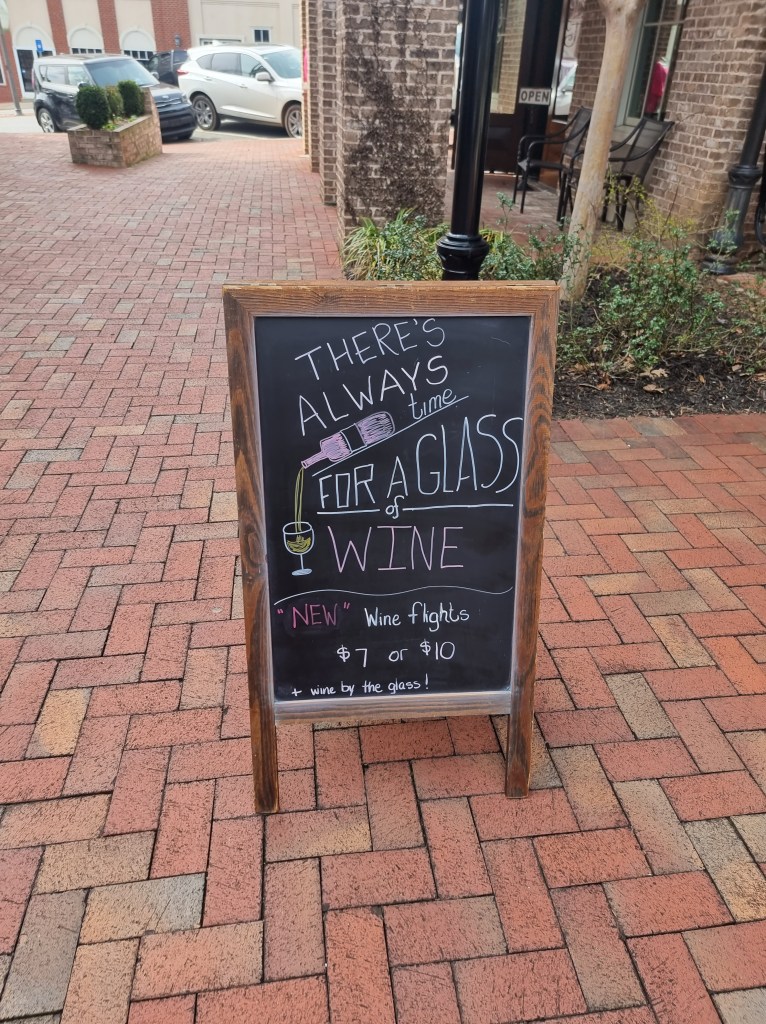 OPEN
THERE'S
ALWAYS
time
FOR A GLASS
of
WINE
"NEW" Wine flights
$7 or $10
+ wine by the glass!